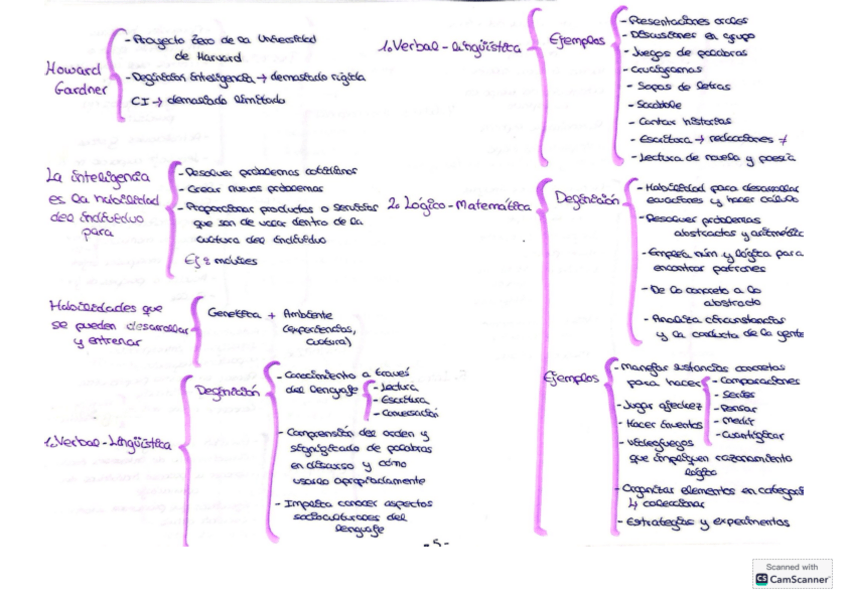 Howard
Gardner
- Proyecto Zero de la Universidad
de Harvard
- Definición Inteligencia → demasiado rígida
CI → demasiado limitado
La inteligencia
es la habilidad
del individuo
para
- Resolver problemas cotidianos
- Crear nuevos problemas
- Proporcionar productos o servicios
que son de valor dentro de la
cultura del individuo
Ej
Habilidades que
se pueden desarrollar
y entrenar
Genética + Ambiente
(experiencias,
cultura)
1. Verbal-Lingüística
Definición
- Conocimiento a través
del lenguaje
- Lectura
- Escritura
- Conversación
- Comprensión del orden y
significado de palabras
en discurso y cómo
usarlo apropiadamente
- Implica conocer aspectos
socioculturales del
lenguaje
1. Verbal-Lingüística
Ejemplos
- Presentaciones orales
- Discusiones en grupo
- Juegos de palabras
- Crucigramas
- Sopas de letras
- Scrabble
- Contar historias
- Escritura → redacciones ≠
- Lectura de novela y poesía
2. Lógico-Matemática
Definición
- Habilidad para desarrollar
ecuaciones y hacer cálculo
- Resolver problemas
abstractos y aritmétic
- Emplea núm y lógica para
encontrar patrones
- De lo concreto a lo
abstracto
- Analiza circunstancias
y la conducta de la gente
Ejemplos
- manejar sustancias concretas
para hacer
- Comparaciones
- Series
- Pensar
- Medir
- Cuantificar
- Jugar ajedrez
- Hacer inventos
- Videojuegos
que impliquen razonamiento
lógico
- Organizar elementos en categorí
↳ coleccionar
- Estrategias y experimentos
- 5 -
Scanned with
CS CamScanner